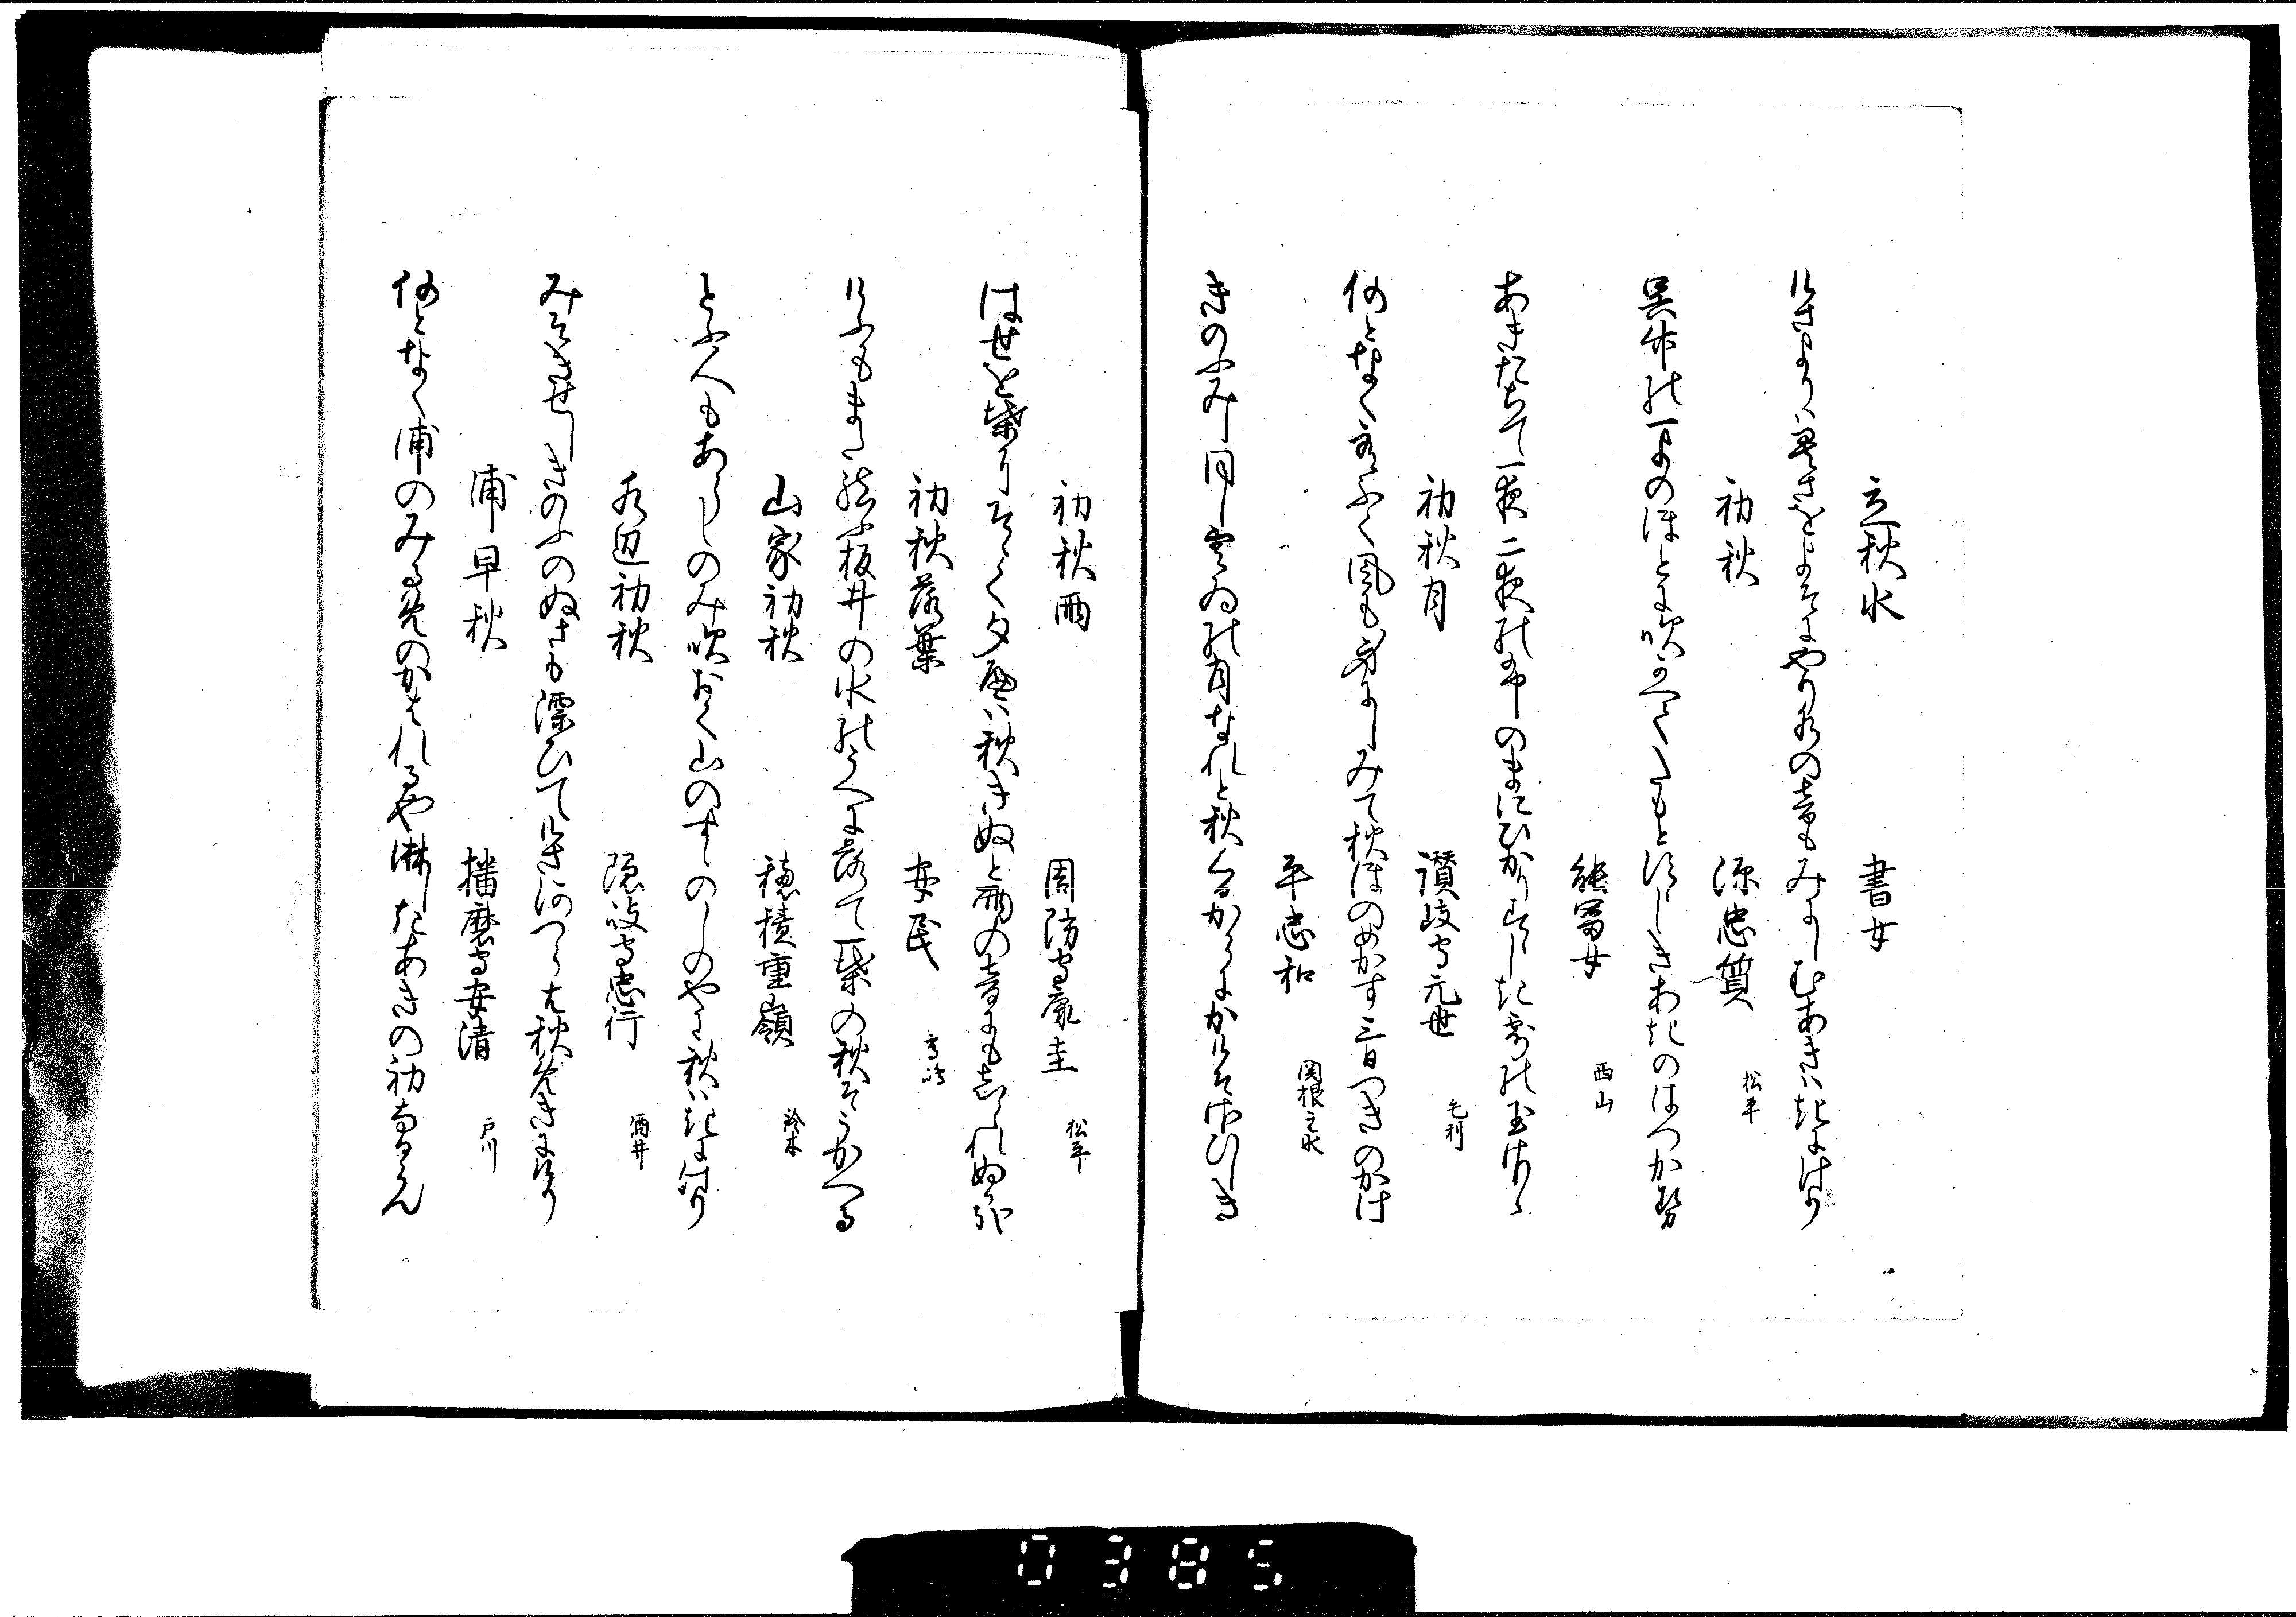 立秋水
書女
けさよりは暑さをよそにやり水の音もみにしむあきはきにけり
初秋
源忠質
松平
呉竹の一よのほとに吹かへてたもと涼しきあきのはつかせ
能冨女
西山
あきたちて一夜二夜の
初秋月
讃岐守元世
毛利
何となく吹風も身にしみて秋ほのめかす三日つきのかけ
平忠和
関根之
きのふみし同し雲ゐの月なれと秋くるからにかけそ
初秋雨
周防守康圭
松平
はせを葉にそゝく夕へは秋きぬと雨の音にもしられぬるかな
初秋落葉
安民
けふもまた結ふ板井の水のうへに落て一葉の秋そうかへる
山家初秋
穂積重嶺
鈴木
とふ人もあらしのみ吹おく山のすゝのしのやも秋はきにけり
水辺初秋
隠岐守忠行
酒井
みそきせしきのふのぬさも漂ひてけさ秋
浦早秋
播磨守安清
戸川
何となく浦のみるめのかはれるや淋したあきの初なるらん
0385